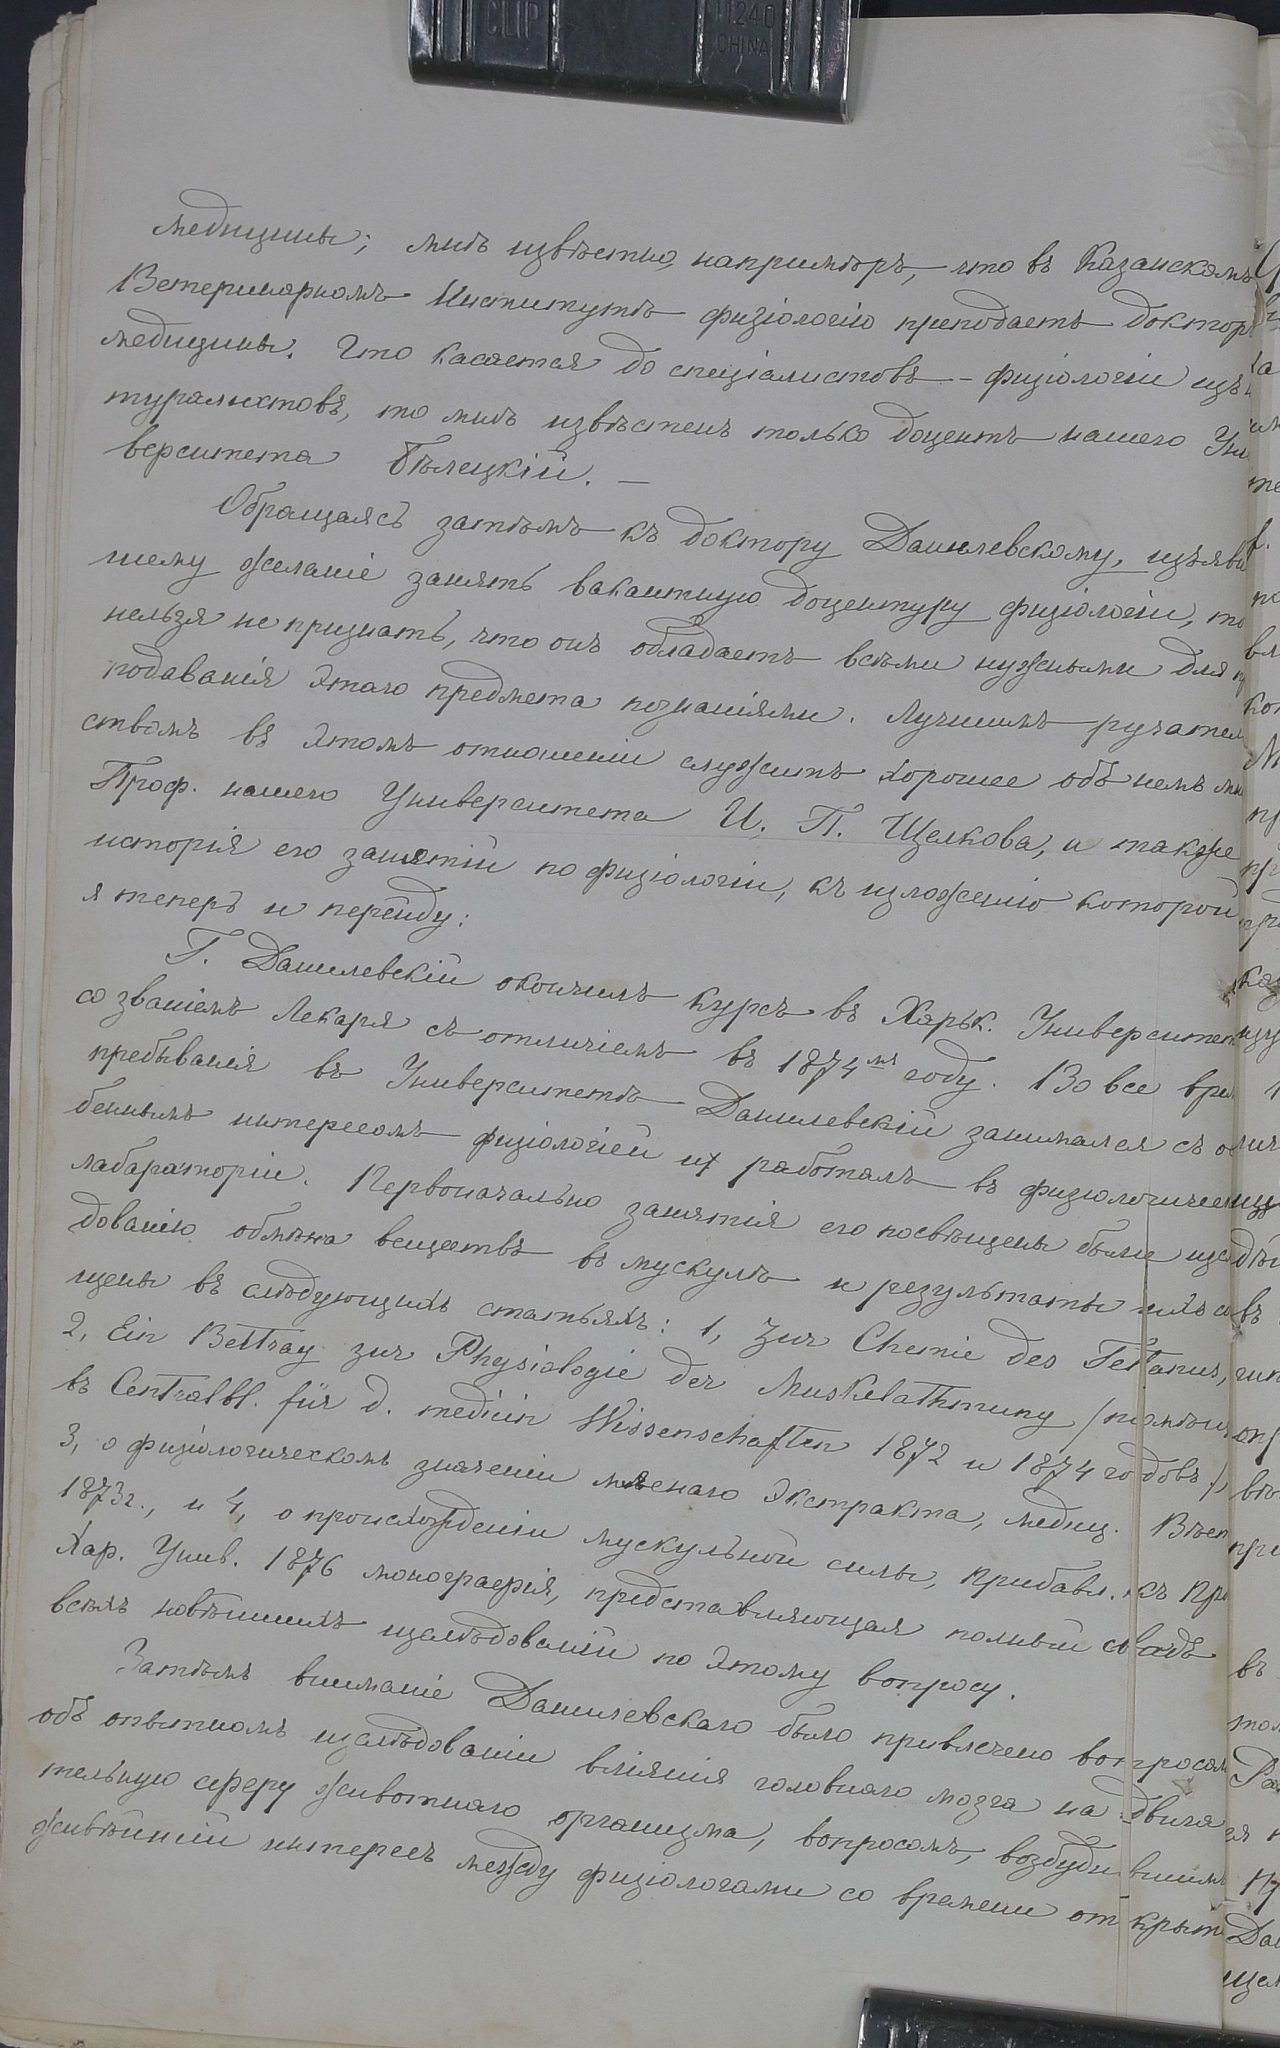 CLIP 11240
CHINA
медицины; мнѣ извѣстно, напримѣръ, что въ Казанскомъ
Ветеринарномъ Институтѣ физіологію преподаетъ докторъ
медицины. Что касается до спеціалистовъ-физіологіи изъ на
туралистовъ, то мнѣ извѣстенъ только доцентъ нашего Уни
верситета Бѣлецкій. —
Обращаясь затѣмъ къ доктору Данилевскому, изъяви
шему желаніе занять вакантную доцентуру физіологіи, то
нельзя не признать, что онъ обладаетъ всѣми нужными для п
подаванія этаго предмета познаніями. Лучшимъ ручател
ствомъ въ этомъ отношеніи служитъ хорошее объ немъ мн
Проф. нашего Университета И. П. Щелкова, и также
исторія его занятій по физіологіи, къ изложенію которой
я теперь и перейду:
Г. Данилевскій окончилъ курсъ въ Харьк. Университет
со званіемъ Лекаря съ отличіемъ въ 1874мъ году. Во все врем
пребыванія въ Университетѣ Данилевскій занимался съ осо
беннымъ интересомъ физіологіей и работалъ въ физіологическ
лабараторіи. Первоначально занятія его посвѣщены были изсл
дованію обмѣна веществъ въ мускулѣ и результаты ихъ
щены въ слѣдующихъ статьяхъ: 1, Zur Chemie des Tetanus,
2, Ein Beitrag zur Physiologie der Muskelathmung (помѣщ
въ Centralbl. für d. medicin Wissenschaften 1872 и 1874 годовъ),
3, о физіологическомъ значеніи мяснаго экстракта, медиц. Вѣст
1873г., и 4, о происхожденіи мускульной силы, прибавл. къ Пр
Хар. Унив. 1876 монографія, представляющая полный сводъ
всѣхъ новѣйшихъ изслѣдованій по этому вопросу.
Затѣмъ вниманіе Данилевскаго было привлечено вопросом
объ опытномъ изслѣдованіи вліянія головнаго мозга на двига
тельную сферу животнаго организма, вопросомъ, возбудившимъ
живѣйшій интересъ между физіологами со времени открыт